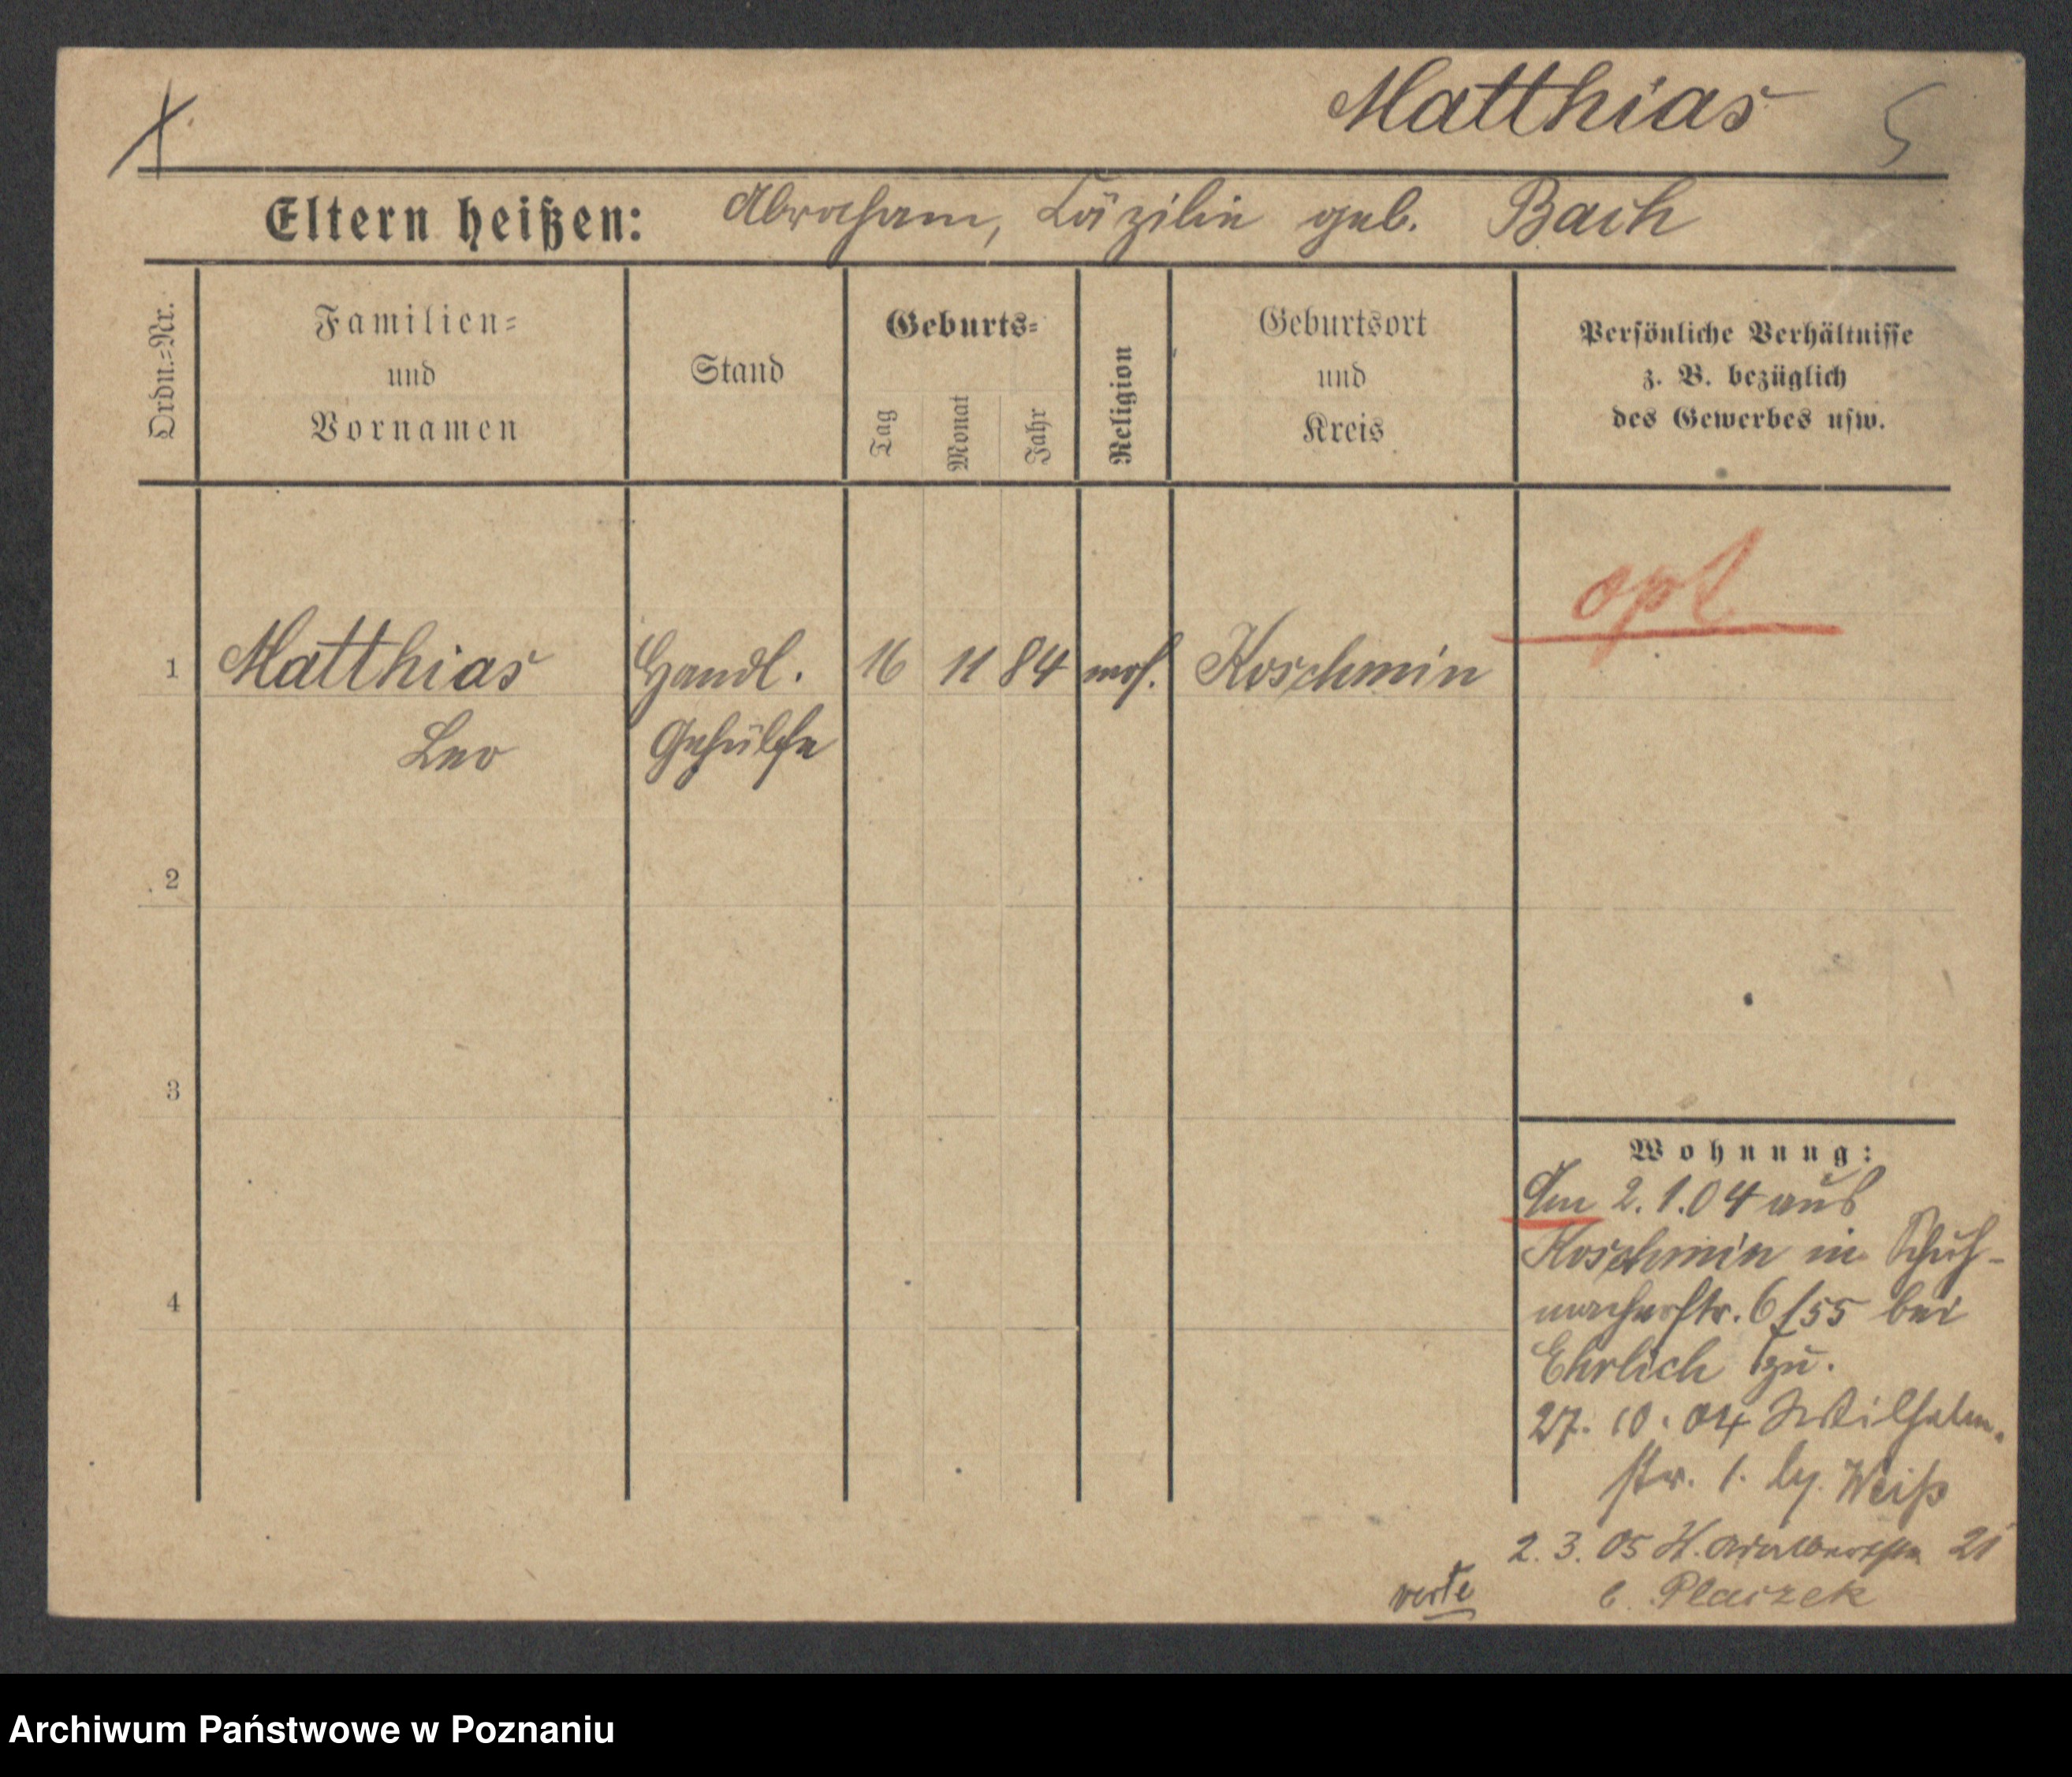 Matthias 5
Eltern heißen: Abraham, Cäzilie geb. Bach
Ordn.=Nr.
Familien=
und
Vornamen
Stand
Geburts=
Tag
Monat
Jahr
Religion
Geburtsort
und
Kreis
Persönliche Verhältnisse
z. B. bezüglich
des Gewerbes usw.
opt
1 Matthias Handl. 16 11 84 mos. Koschmin
Leo Gehülfe
2
3
4
Wohnung:
Am 2.1.04 aus
Koschmin in Schuh-
macherstr. 6 / 55 bei
Ehrlich zu.
27. 10. 04 Wilhelm-
str. 1. Weiß
2. 3. 05 Adalbertstr. 21
b. Placzek
verte
Archiwum Państwowe w Poznaniu